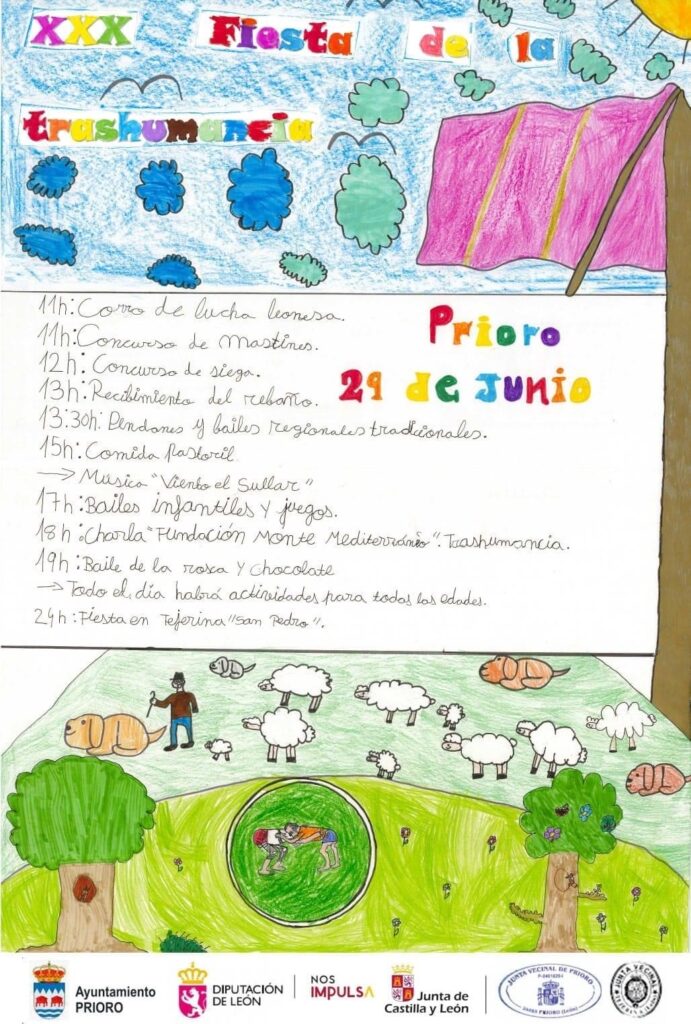 XXX Fiesta de la
trashumancia
11h: Corro de lucha leonesa.
11h: Concurso de mastines.
12h: Concurso de siega.
13h: Recibimiento del rebaño.
13:30h: Pendones y bailes regionales tradicionales.
15h: Comida Pastoril
→ Musica "Viento el Sullar"
17h: Bailes infantiles y juegos.
18h: Charla "Fundación Monte Mediterráneo". Trashumancia.
19h: Baile de la rosca y chocolate
→ Todo el día habrá actividades para todas las edades.
24h: Fiesta en Tejerina "San Pedro".
Prioro
29 de JUNIO
Ayuntamiento
PRIORO
DIPUTACIÓN
DE LEÓN
NOS
IMPULSA
Junta de
Castilla y León
JUNTA VECINAL DE PRIORO
PRIORO (León)
JUNTA VECINAL